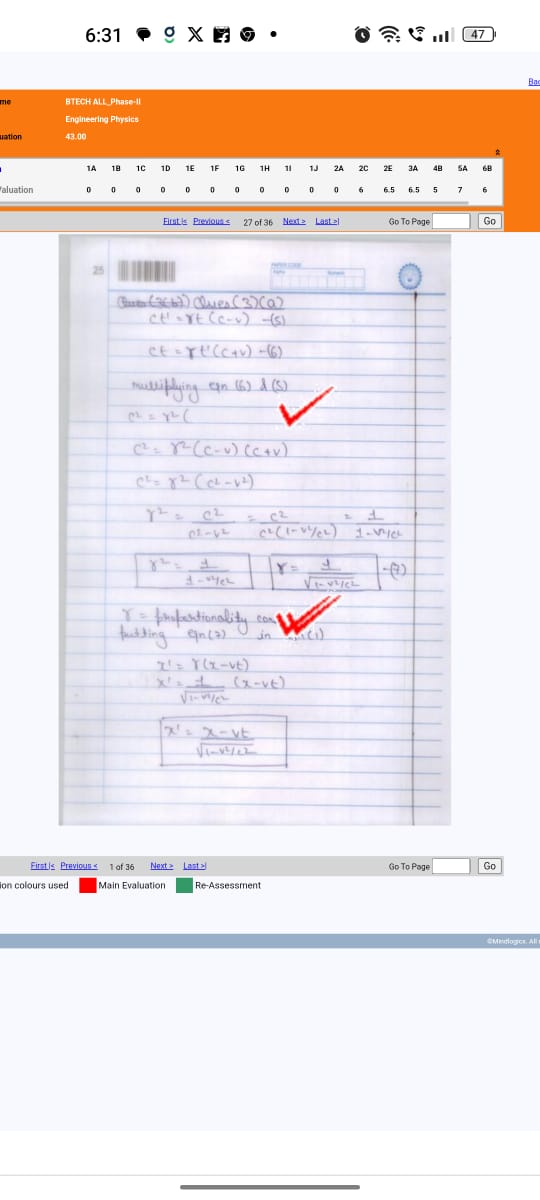 6:31
47
Bac
me
BTECH ALL_Phase-II
Engineering Physics
uation
43.00
1A 1B 1C 1D 1E 1F 1G 1H 1I 1J 2A 2C 2E 3A 4B 5A 6B
/aluation 0 0 0 0 0 0 0 0 0 0 0 6 6.5 6.5 5 7 6
First |< Previous < 27 of 36 Next > Last >| Go To Page Go
25
PAPER CODE
Ques (3)(a)
ct' = γt (c-v) -(5)
ct = γt'(c+v) -(6)
multiplying eqn (6) & (5)
c² = γ² (
c² = γ² (c-v) (c+v)
c² = γ² (c²-v²)
γ² = c²/c²-v² = c²/c²(1-v²/c²) = 1/1-v²/c²
γ² = 1/1-v²/c² γ = 1/√1-v²/c² -(7)
γ = proportionality
putting eqn (7) in (1)
x' = γ(x-vt)
x' = 1/√1-v²/c² (x-vt)
x' = x-vt/√1-v²/c²
First |< Previous < 1 of 36 Next > Last >| Go To Page Go
ion colours used Main Evaluation Re-Assessment
©Mindlogicx. All